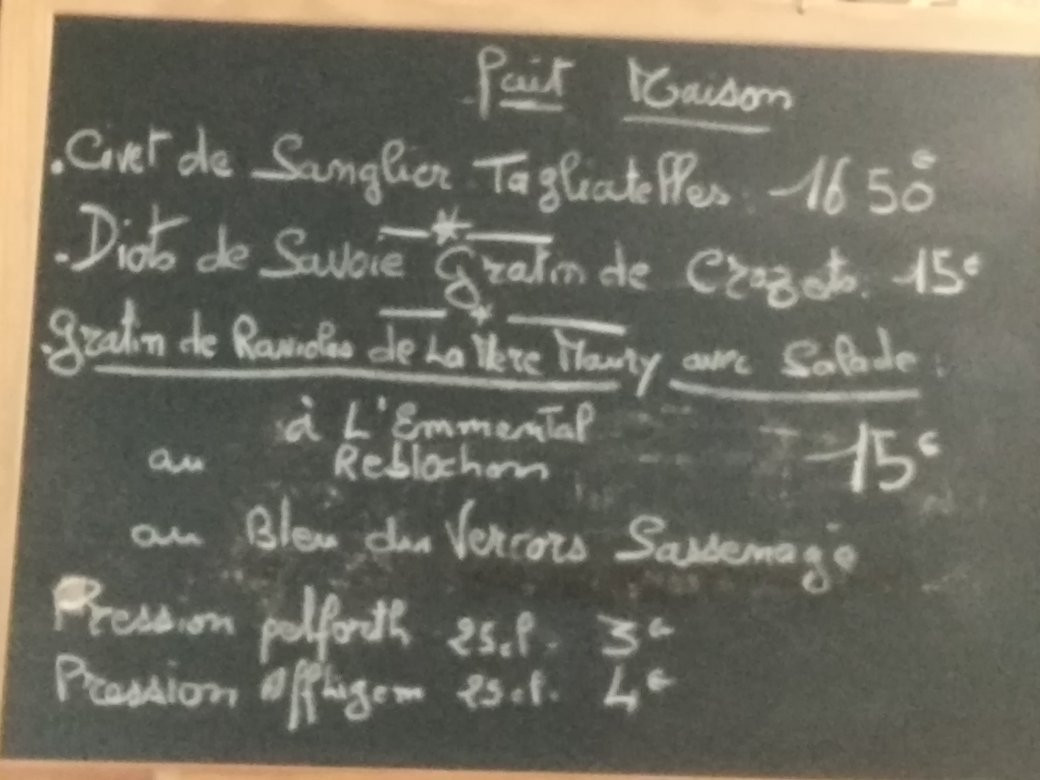 Fait Maison
.Civet de Sanglier Tagliatelles. 16 50€
—*—
.Diots de Savoie Gratin de Crozets. 15€
—*—
.Gratin de Ravioles de La Mère Maury avec Salade.
à L'Emmental
au Reblochon 15€
au Bleu du Vercors Sassenage
Pression pelforth 25.cl. 3€
Pression Affligem 25.cl. 4€